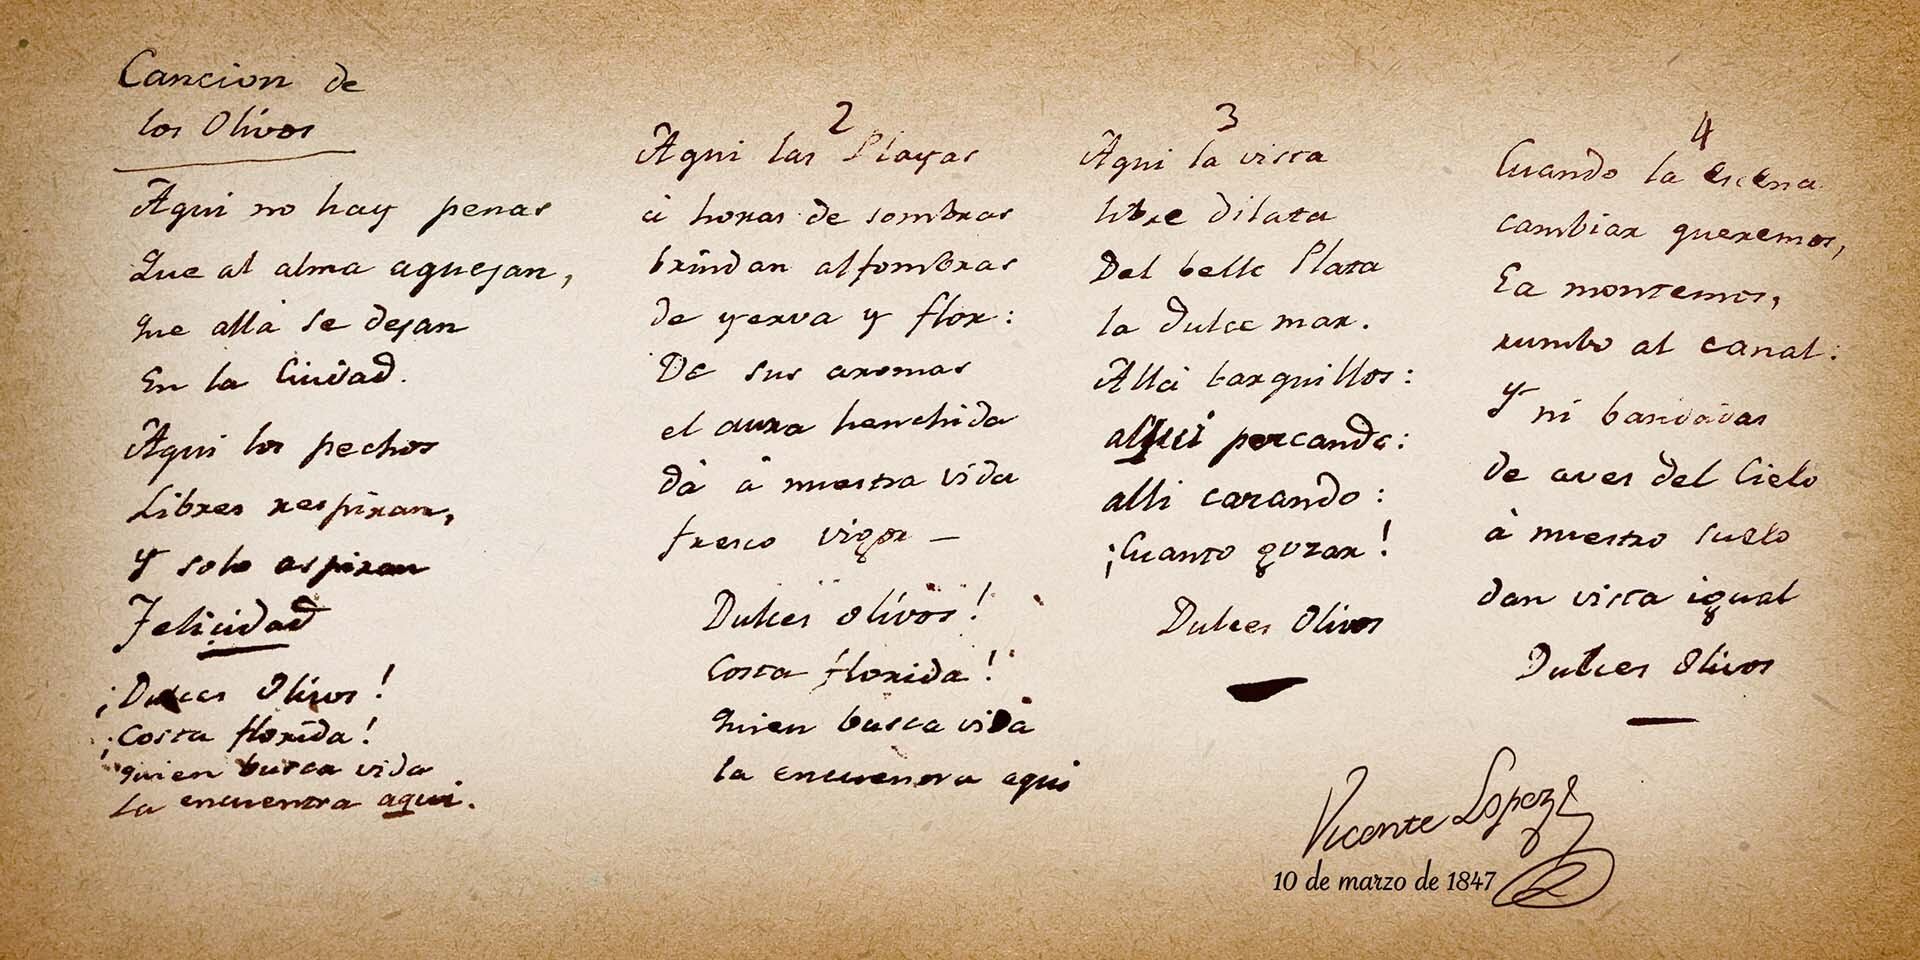 Cancion de
los Olivos
Aqui no hay penas
Que al alma aquejan,
que allá se dejan
En la Ciudad.
Aqui los pechos
Libres respiran,
Y solo aspiran
Felicidad
¡Dulces Olivos!
¡Costa florida!
quien busca vida
La encuentra aqui.
2
Aqui las Playas
á horas de sombras
brindan alfombras
de yerva y flor:
De sus aromas
el aura henchida
dá á nuestra vida
fresco vigor —
Dulces olivos!
Costa florida!
quien busca vida
la encuentra aqui
3
Aqui la vista
libre dilata
Del bello Plata
la dulce mar.
Allá barquillos:
aqui pescando:
alli cazando:
¡Cuanto gozar!
Dulces Olivos
4
Cuando la escena
cambiar queremos,
Ea montemos,
rumbo al canal:
Y ni bandadas
de aves del Cielo
á nuestro suelo
dan vista igual
Dulces Olivos
Vicente Lopez
10 de marzo de 1847